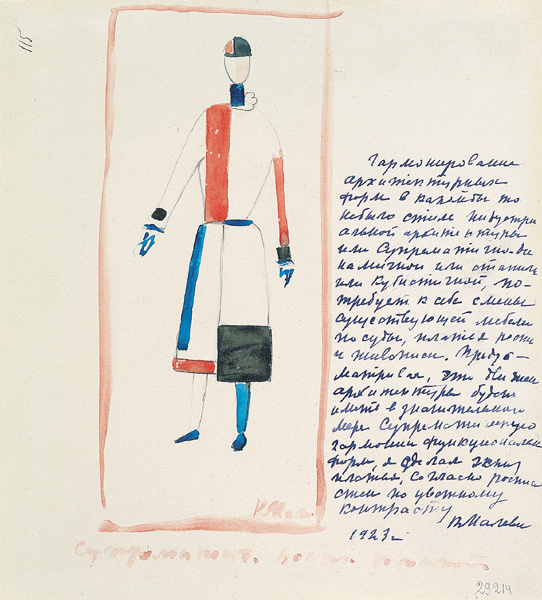 115
Гармонирование
архитектурных
форм в какой бы то
небыло стиле индустри
альной архитектуры
или Супрематично-ди
намичной или статич
или Кубистичной, по-
требует к себе смены
существующей мебели
посуды, платья росписи
и живописи. Предус-
матривая, что движение
архитектуры будет
иметь в значительной
мере Супрематическую
гармонию функциональн
форм, я сделал эскиз
платья, согласно росписи
стен по цветному
контрасту
КМалеви
1923 г
КМал
Супрематич.
29214